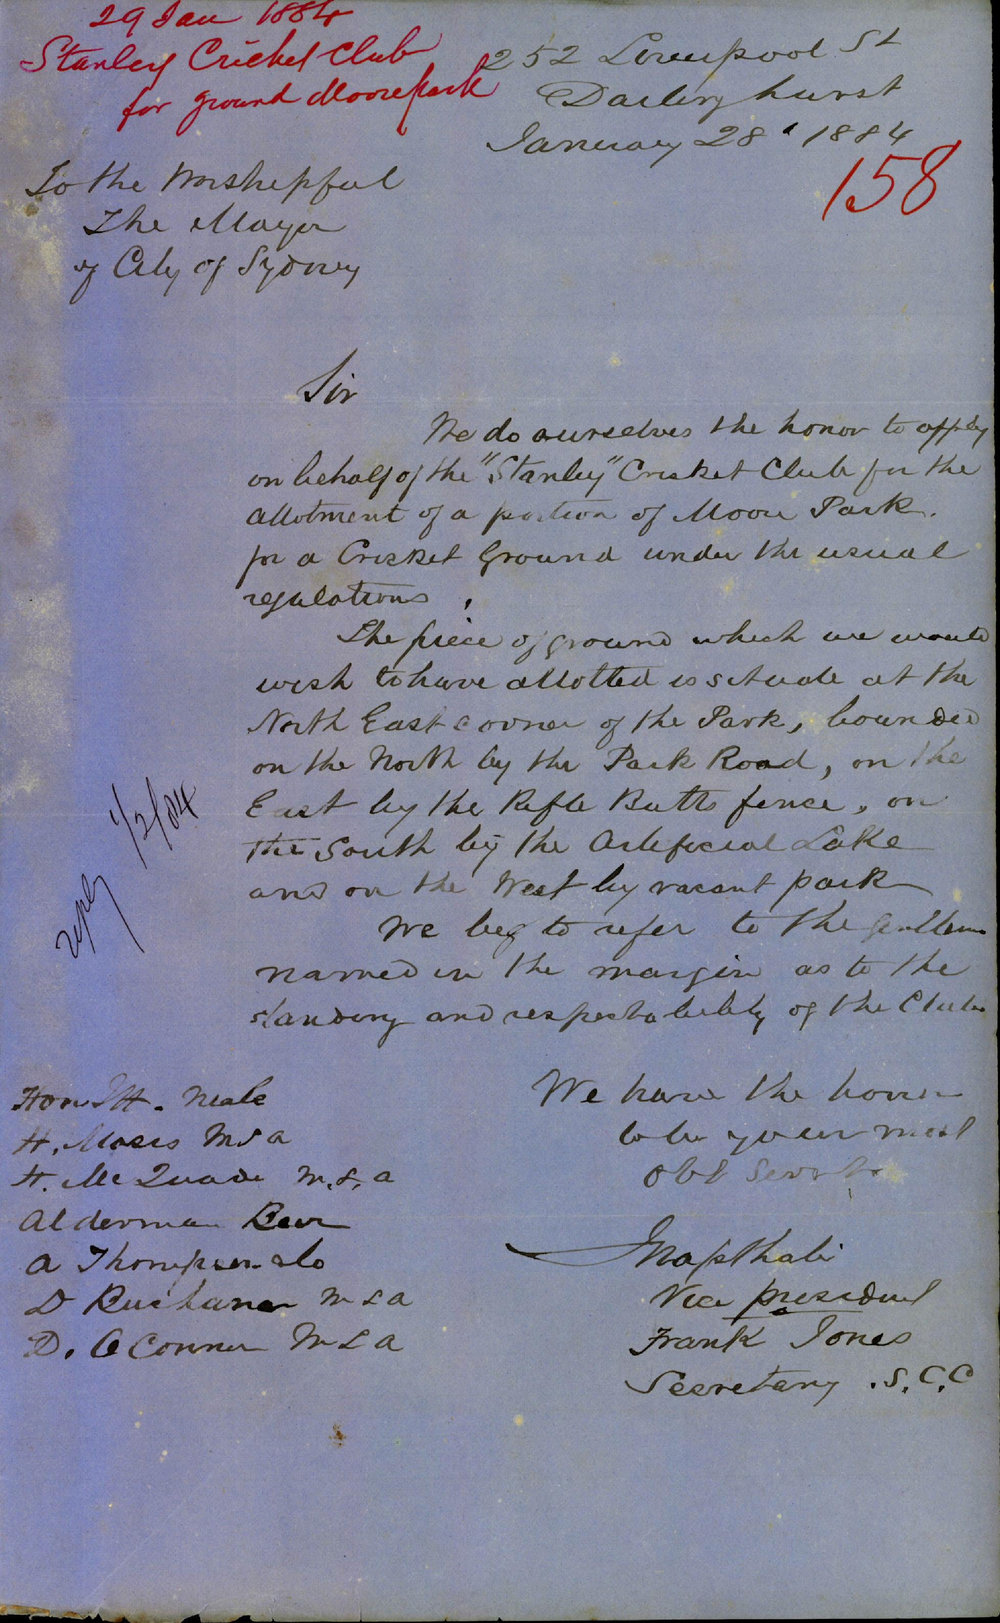 29 Jan 1884
Stanley Cricket Club
for ground Moore park
252 Liverpool St
Darlinghurst
January 28 1884
158
To the Worshipful
The Mayor
of City of Sydney
Sir
We do ourselves the honor to apply
on behalf of the "Stanley" Cricket Club for the
allotment of a portion of Moore Park.
for a Cricket Ground under the usual
regulations.
The piece of ground which we would
wish to have allotted is situate at the
North East corner of the Park, bounded
on the North by the Park Road, on the
East by the Rifle Butts fence, on
the South by the Artificial Lake
and on the West by vacant park
We beg to refer to the gentlemen
named in the margin as to the
standing and respectability of the Club
reply 1/2/84
Hon J H. Neale
H. Moses MLA
H. McQuade M.L.A
Alderman
A Thompson do
D Buchanan MLA
D. O Connor MLA
We have the honor
to be your most
Obt Servts
Napthali
Vice president
Frank Jones
Secretary .S.C.C